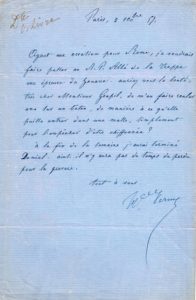 Paris, 2 octbre 57.
ayant une occasion pour Rome, je voudrais
faire passer au R. P. Abbé de la Trappe
une épreuve de Genève. auriez vous la bonté,
cher Monsieur Goupil, de m'en faire rouler
une sur un bâton, de manière à ce qu'elle
puisse entrer dans une malle, simplement
pour l'empêcher d'être chiffonnée ?
à la fin de la semaine j'aurai terminé
Daniel. ainsi il n'y aura pas de temps de perdu
pour la gravure.
tout à vous
Hce Vernet